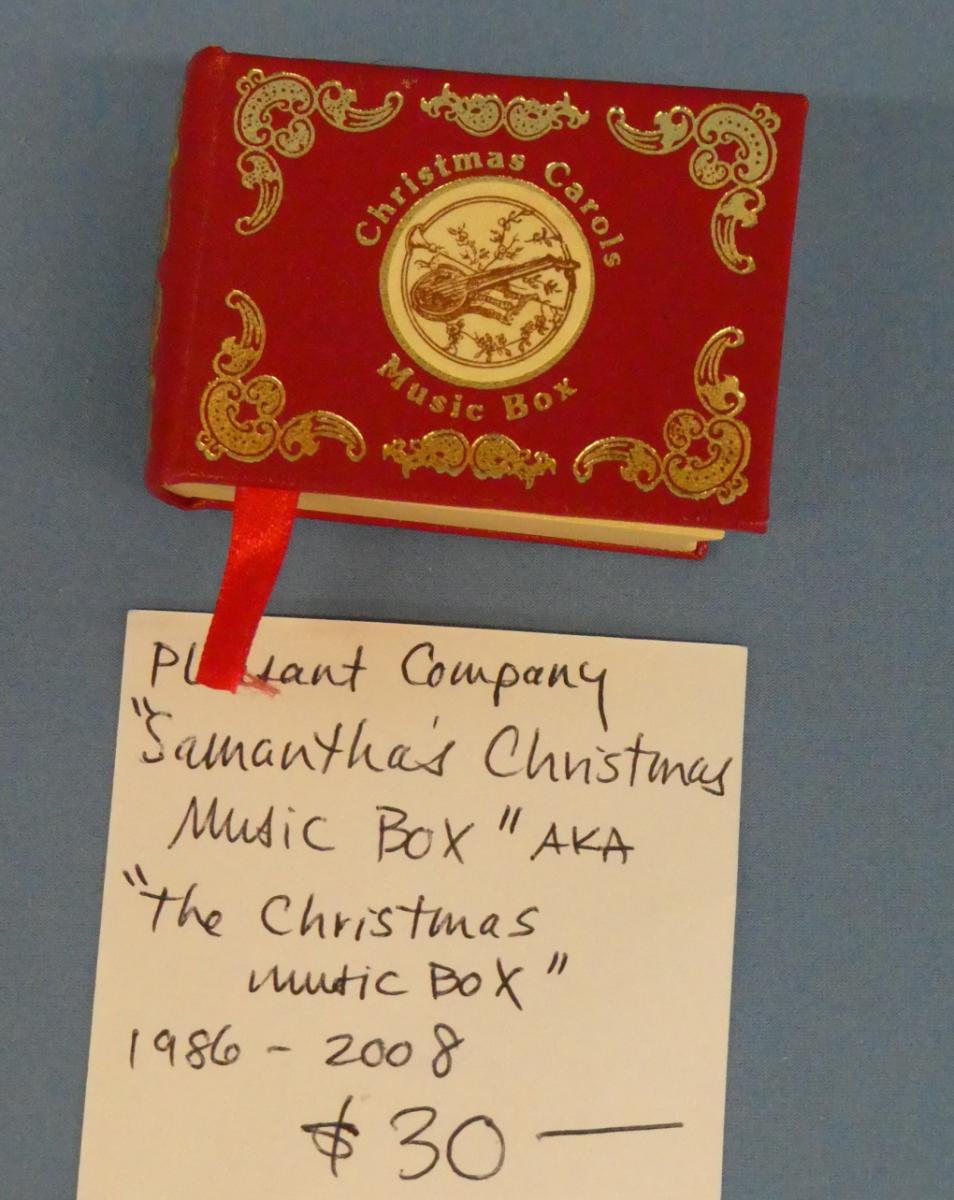 Christmas Carols
Music Box
Pleasant Company
"Samantha's Christmas
Music Box" AKA
"The Christmas
Music Box"
1986 - 2008
$30—